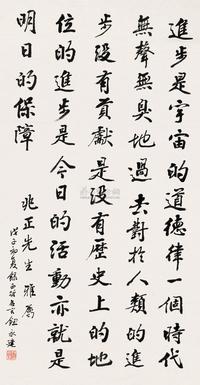 進步是宇宙的道德律一個時代
無聲無臭地過去對於人類的進
步沒有貢獻是沒有歷史上的地
位的進步是今日的活動亦就是
明日的保障
兆正先生雅屬
戊子初夏錄
鈕永建